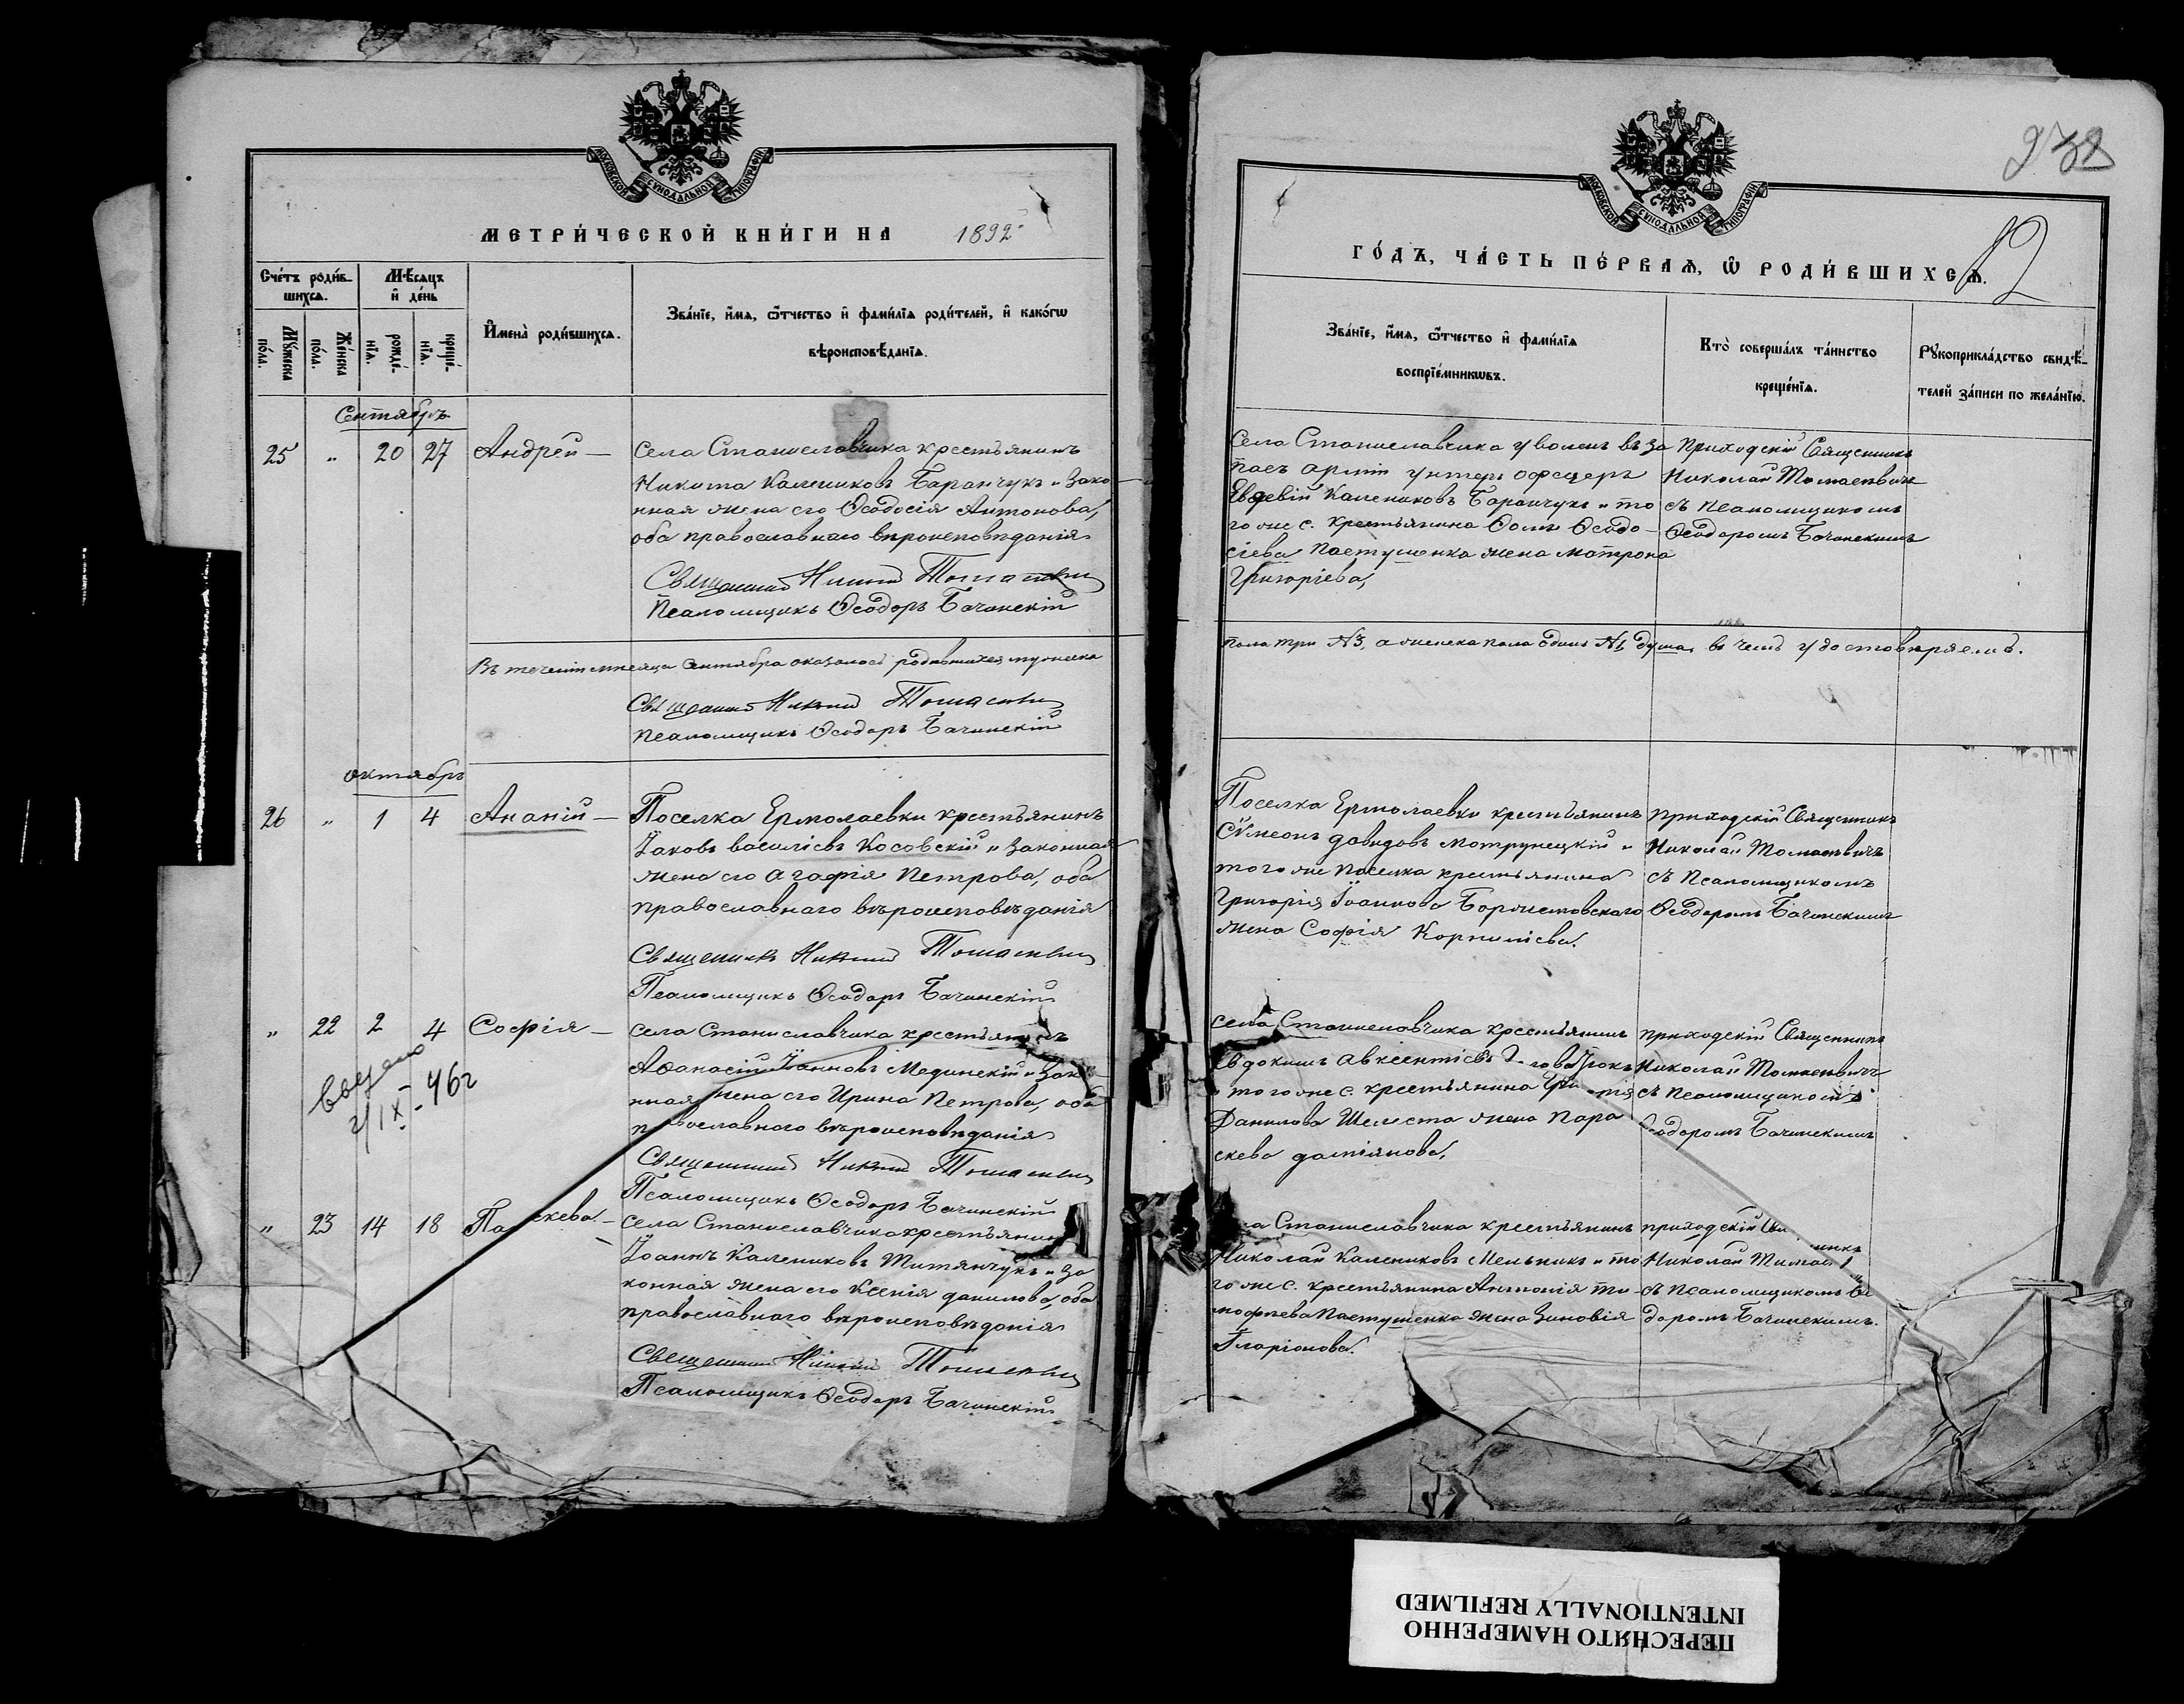 МЕТРИ́ЧЕСКОЙ КНИ́ГИ НА 1892
Сче́тъ роди́в-
шихся.
Мѣ́сяцъ
и҆ де́нь
Мꙋ́жеска
по́ла.
Же́нска
по́ла.
рожде́-
нїѧ.
креще́-
нїѧ.
И҆мена̀ роди́вшихсѧ.
Зва́нїе, и҆́мѧ, ѻ҆́тчество и҆ фами́лїѧ роди́телей, и҆ како́гѡ
вѣроисповѣ́данїѧ.
Сентябрь
25 " 20 27 Андрей —
Села Станиславчика крестьянинъ
Никита Калениковъ Баранчукъ и зако-
нная жена его Ѳеодосія Антонова,
оба православнаго вѣроисповѣданія
Священникъ Николай Томасевич
Псаломщикъ Ѳеодоръ Бачинскій
Въ теченіи мѣсяца Сентября оказалось родившихся мужеска
Священникъ Николай Томасевич
Псаломщикъ Ѳеодоръ Бачинскій
октябрь
26 " 1 4 Ананій —
Поселка Ермолаевки крестьянинъ
Іаковъ Василіевъ Косовскій и законная
жена его Агафія Петрова, оба
православнаго вѣроисповѣданія
Священникъ Николай Томасевич
Псаломщикъ Ѳеодоръ Бачинскій
" 22 2 4 Софія —
села Станиславчика крестьянинъ
Аѳанасій Іоанновъ Мединскій и зако
нная жена его Ирина Петрова, оба
православного вѣроисповѣданія
Священникъ Николай Томасевич
Псаломщикъ Ѳеодоръ Бачинскій
2/IX - 46г
" 23 14 18 Параскева —
села Станиславчика крестьянин
Іоаннъ Калениковъ Титянчукъ и за
конная жена его Ксенія Данилова, оба
православнаго вѣроисповѣданія
Священникъ Николай Томасевич
Псаломщикъ Ѳеодоръ Бачинскій
МОСКОВСКОЙ СѴНОДАЛЬНОЙ ТИПОГРАФІИ
12
ГО́ДЪ, ЧА́СТЬ ПЕ́РВАѦ, Ѡ҆ РОДИ́ВШИХСѦ.
Зва́нїе, и҆́мѧ, ѻ҆́тчество и҆ фами́лїѧ
воспрїе́мникѡвъ.
Кто̀ соверша́лъ та́инство
креще́нїѧ.
Рꙋкоприкла́дство свидѣ́-
телей за́писи по жела́нїю.
Села Станиславчика уволенъ въ за
пасъ арміи унтеръ офецеръ
Евсевій Калениковъ Баранчукъ и то
го же с. крестьянина Ѳомы Ѳеодо-
сіева Пастушенка жена Матрона
Григоріева,
Приходскій Священникъ
Николай Томасевичъ
съ псаломщикомъ
Ѳеодоромъ Бачинскимъ
пола три №3, а женска пола одинъ №1 душа, въ чемъ удостовѣряемъ.
Поселка Ермолаевки крестьянинъ
Сѵмеонъ Давидовъ Мотрунецкій и
того же поселка крестьянина
Григорія Іоаннова Боржестовскаго
жена Софія Корниліева.
приходскій Священникъ
Николай Томасевичъ
съ псаломщикомъ
Ѳеодоромъ Бачинскимъ
села Станиславчика крестьянинъ
Евдокимъ Авксентіевъ
того же с. крестьянина Григорія
Данилова Шелеста жена Пара
скева Даміянова,
приходскій Священникъ
Николай Томасевичъ
съ псаломщикомъ
Ѳеодоромъ Бачинскимъ
села Станиславчика крестьянинъ
Николай Калениковъ Мельникъ и то
го же с. крестьянина Антонія Ти-
мофѣева Пастушенка жена Зиновія
Иларіонова.
приходскій Священникъ
Николай Томасевичъ
съ псаломщикомъ Ѳео
доромъ Бачинскимъ.
ПЕРЕСНЯТО НАМЕРЕННО
INTENTIONALLY REFILMED